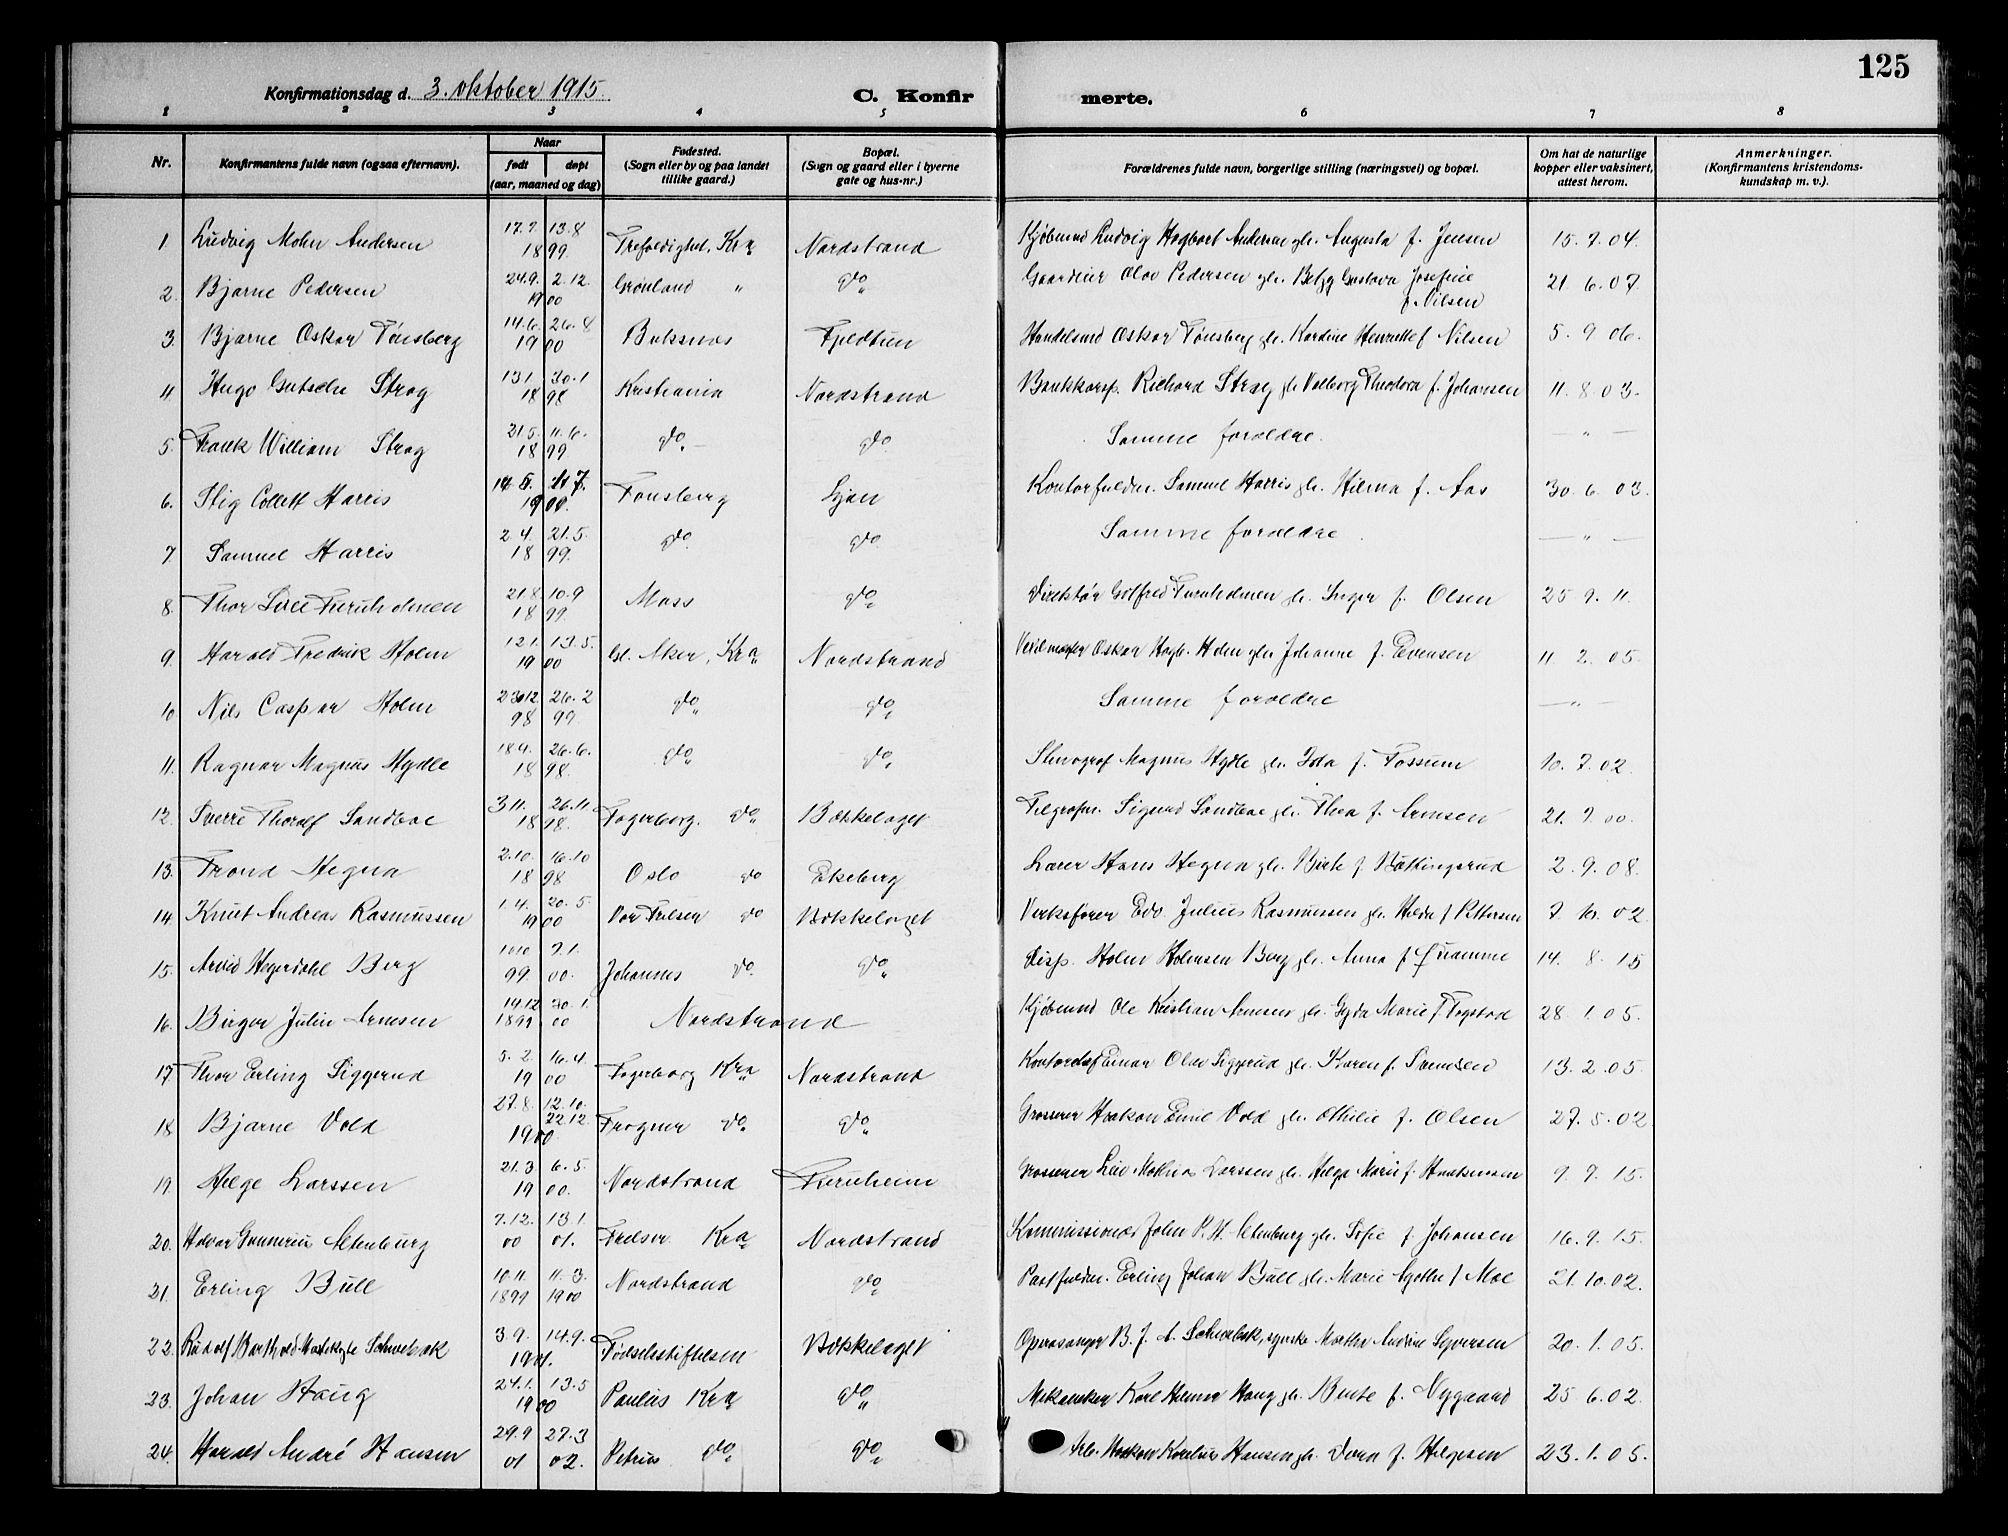 125
Konfirmationsdag d. 3. oktober 1915.
C. Konfirmerte.
1 2 3 4 5 6 7 8
Nr. Konfirmantens fulde navn (ogsaa efternavn). Naar født døpt (aar, maaned og dag) Fødested. (Sogn eller by og paa landet tillike gaard.) Bopæl. (Sogn og gaard eller i byerne gate og hus-nr.) Forældrenes fulde navn, borgerlige stilling (næringsvei) og bopæl. Om hat de naturlige kopper eller vaksinert, attest herom. Anmerkninger. (Konfirmantens kristendomskundskap m. v.).
1. Ludvig Mohn Andersen 17.7. 13.8 1899 Trefoldighet, Kra Nordstrand Kjøbmand Ludvig Hagbart Andersen gh. Augusta f. Jensen 15.7.04.
2. Bjarne Pedersen 24.9. 2.12. 1900 Grønland " do Olav Pedersen gh. Betzy Gustava Josefine f. Nilsen 21.6.07
3. Bjarne Oskar Tønsberg 14.6. 26.8 1900 Buksnes Fjeldtun Handelsmd Oskar Tønsberg gh. Kardine Henriette f Nilsen 5.9 06.
4 Hugo Strøg 13.1. 30.1 1898 Kristiania Nordstrand Bankkasp. Richard Strøg gh Valborg Theodora f. Johansen 11.8.03.
5. Frank William Strøg 21.5. 11.6. 1899 do do Samme foreldre. — " —
6. Stig Collett Harris 14.5. 11.7. 1900. Tønsberg Ljan Kontorfuldm. Samuel Harris gh. Hilma f. Aas 30.6.03.
7. Samuel Harris 2.4. 21.5. 1899. do do Samme foreldre. — " —
8. Thor Furuholmen 21.8. 10.9 1899. Moss do Direktør Furuholmen gh. Inger f. Olsen 25.9.11.
9. Harald Fredrik Holm 12.1. 13.5. 1900 Gl. Aker, Kra Nordstrand Oskar Holm gh Johanne f. Evensen 11.2.05.
10 Nils Caspar Holm 23012. 26.2 98 99. do do Samme foreldre — " —
11. Ragnar Magnus Hydle 18.4. 26.6. 1898. do do Magnus Hydle gh. Ida f. Fossum 10.7.02.
12. Sverre Thoralf Sandboe 3.11. 26.11. 1898. Fagerborg. do Bækkelaget Sigurd Sandboe gh. Thea f. Arnesen 21.7.00.
13. Trond Hegna 2.10. 16.10 1898 Oslo do Ekeberg Lærer Hans Hegna gh. f. 2.9.08.
14. Knut Andreas Rasmussen 1.4. 20.5. 1900 Vor Frelser do Bækkelaget Verksfører Edv. Julius Rasmussen gh. Hilda f Pettersen 7.10.02
15. Arvid Hegerdahl Berg 10.10 7.1. 99. 00. Johannes do. do Disp. Holm Holmsen Berg gh. Anna f 14.8.15
16. Birger Julin Arnesen 14.12 20.1. 1899. 00 Nordstrand Kjøbmand Ole Kristian Arnesen gh. Gyda Marie f Fogstad 28.1.05.
17. Thor Erling Siggerud 5.2. 16.4. 1900 Fagerborg Kra Nordstrand Kontorchef Einar Olav Siggerud gh. Karen f. 13.2.05.
18 Bjarne Vold 27.8. 12.10. 22.12. 1900 Frogner do do Grosserer Haakon Emil Vold gh. Othilie f. Olsen 27.5.02
19. Helge Larssen 21.3 6.5. 1900. Nordstrand Furuheim Grosserer Mathias Larssen gh. Helga Marie f. 9.7.15.
20. Halvar Gunnerius Altenburg 7.12. 13.1. 00 01. Frelser Kra Nordstrand Kommissionær John P. H. Altenburg gh. Sofie f Johansen 16.9.15.
21. Erling Bull 10.11. 11.3. 1899 1900 Nordstrand do Postfuldm. Erling Johan Bull gh. Marie Agathe f Moe 21.10.02.
22. Rudolf Barthold Schwebak 3.9. 14.9. 1901. Fødselsstiftelsen Bækkelaget Operasanger B. J. A. Schwebak, Martha Syversen 20.1.05.
23. Johan Haug 24.1. 13.5 1900 Paulus Kra do Mekaniker Karl Haug gh. f. Nygaard 25 6.02.
24. Harald André Hansen 29.9 27.3 01 02. Petrus do do Arb. Haakon Kornelius Hansen gh. f. Helgesen 23.1.05.